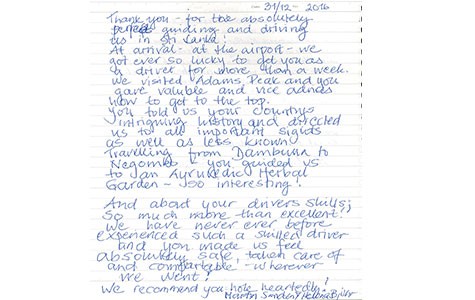 - 31/12 - 2016
Thank you - for the absolutely
perfect guiding and driving
us in Sri Lanka!
At arrival - at the airport - we
got ever so lucky to get you as
a driver for more than a week.
We visited Adams Peak and you
gave valuble and vice advices
how to get to the top.
You told us your countys
intriguing history and directed
us to all important sights
as well as less known
Travelling from Dambulla to
Negombo - you guided us
to an Ayruvedic Herbal
Garden - soo interesting!
And about your drivers skills;
So much more than excellent!
We have never ever before
experienced such a skilled driver
and you made us feel
absolutely safe, taken care of
and comfortable - wherever
we went!
We recommend you hole heartedly!
Martin